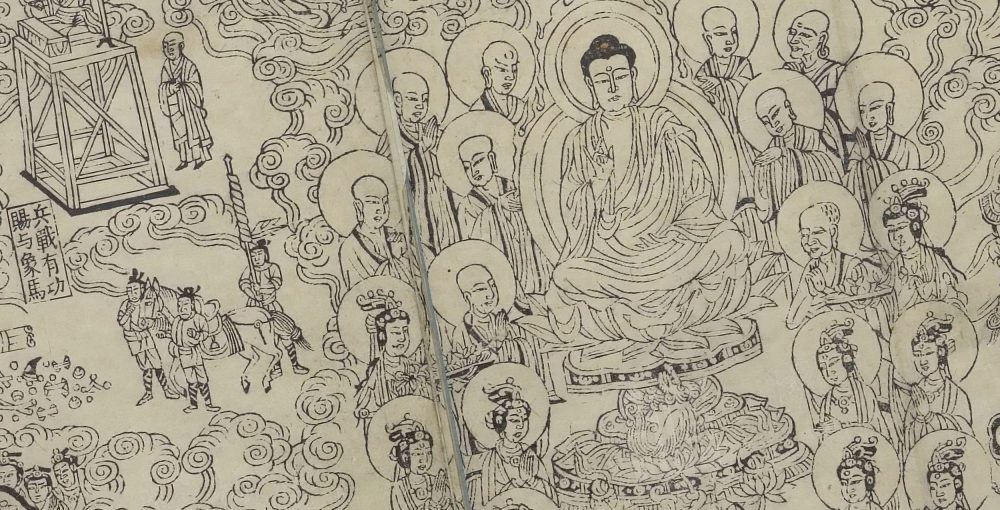 兵戰有功
賜与象馬